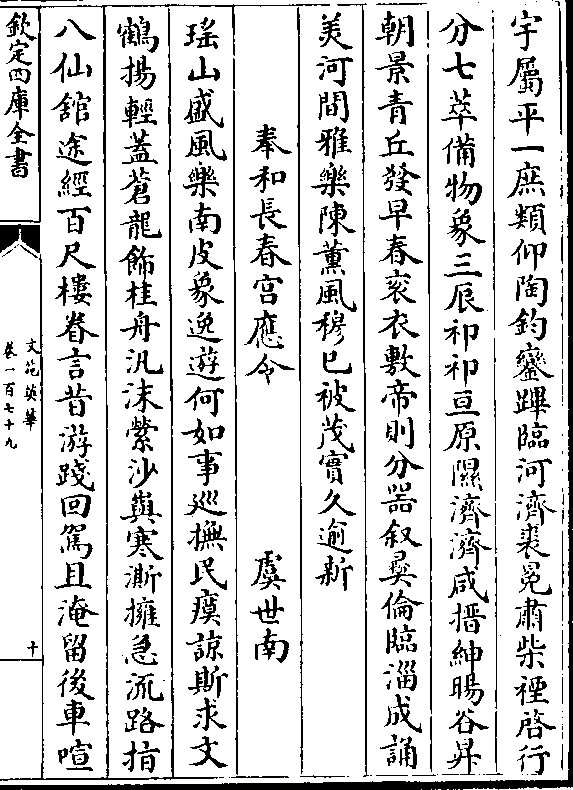 宇屬平一庶類仰陶鈞鑾蹕臨河濟裘冕肅柴禋啓行
分七萃備物象三辰祁祁亘原隰濟濟咸搢紳暘谷昇
朝景青丘發早春衮衣敷帝則分器叙彛倫臨淄成誦
美河間雅樂陳薫風穆已被茂實久逾新
奉和長春宫應令 虞世南
瑶山盛風樂南皮象逸遊何如事巡撫民瘼諒斯求文
鶴揚輕蓋蒼龍飾桂舟汎沫縈沙嶼寒澌擁急流路指
八仙舘途經百尺樓眷言昔游踐回駕且淹留後車喧
欽定四庫全書
文苑英華
卷一百七十九
十